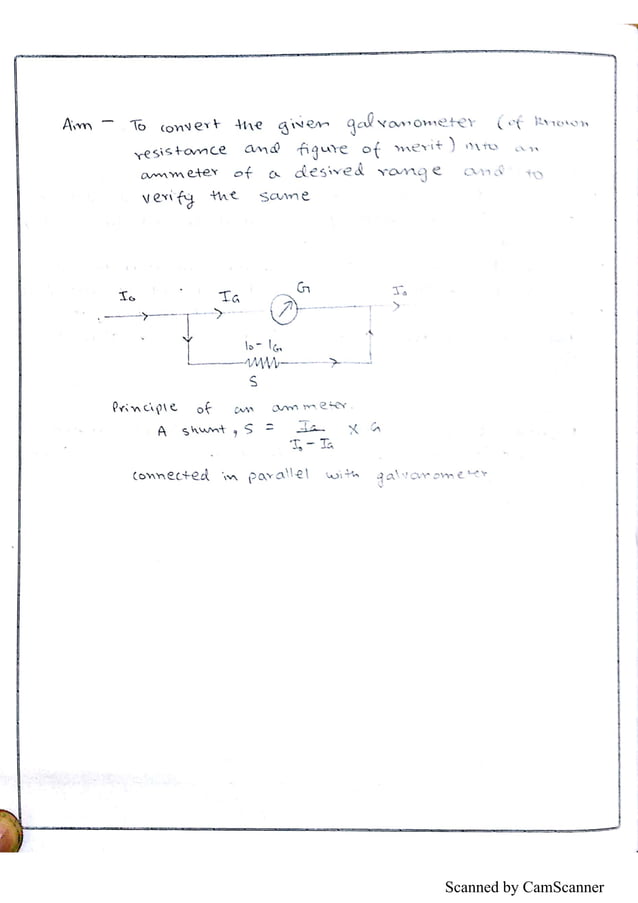 Aim - To convert the given galvanometer (of known
resistance and figure of merit) into an
ammeter of a desired range and to
verify the same
I₀ IG G I₀
I₀ - IG
S
Principle of an ammeter.
A shunt, S = IG / I₀ - IG × G
connected in parallel with galvanometer
Scanned by CamScanner